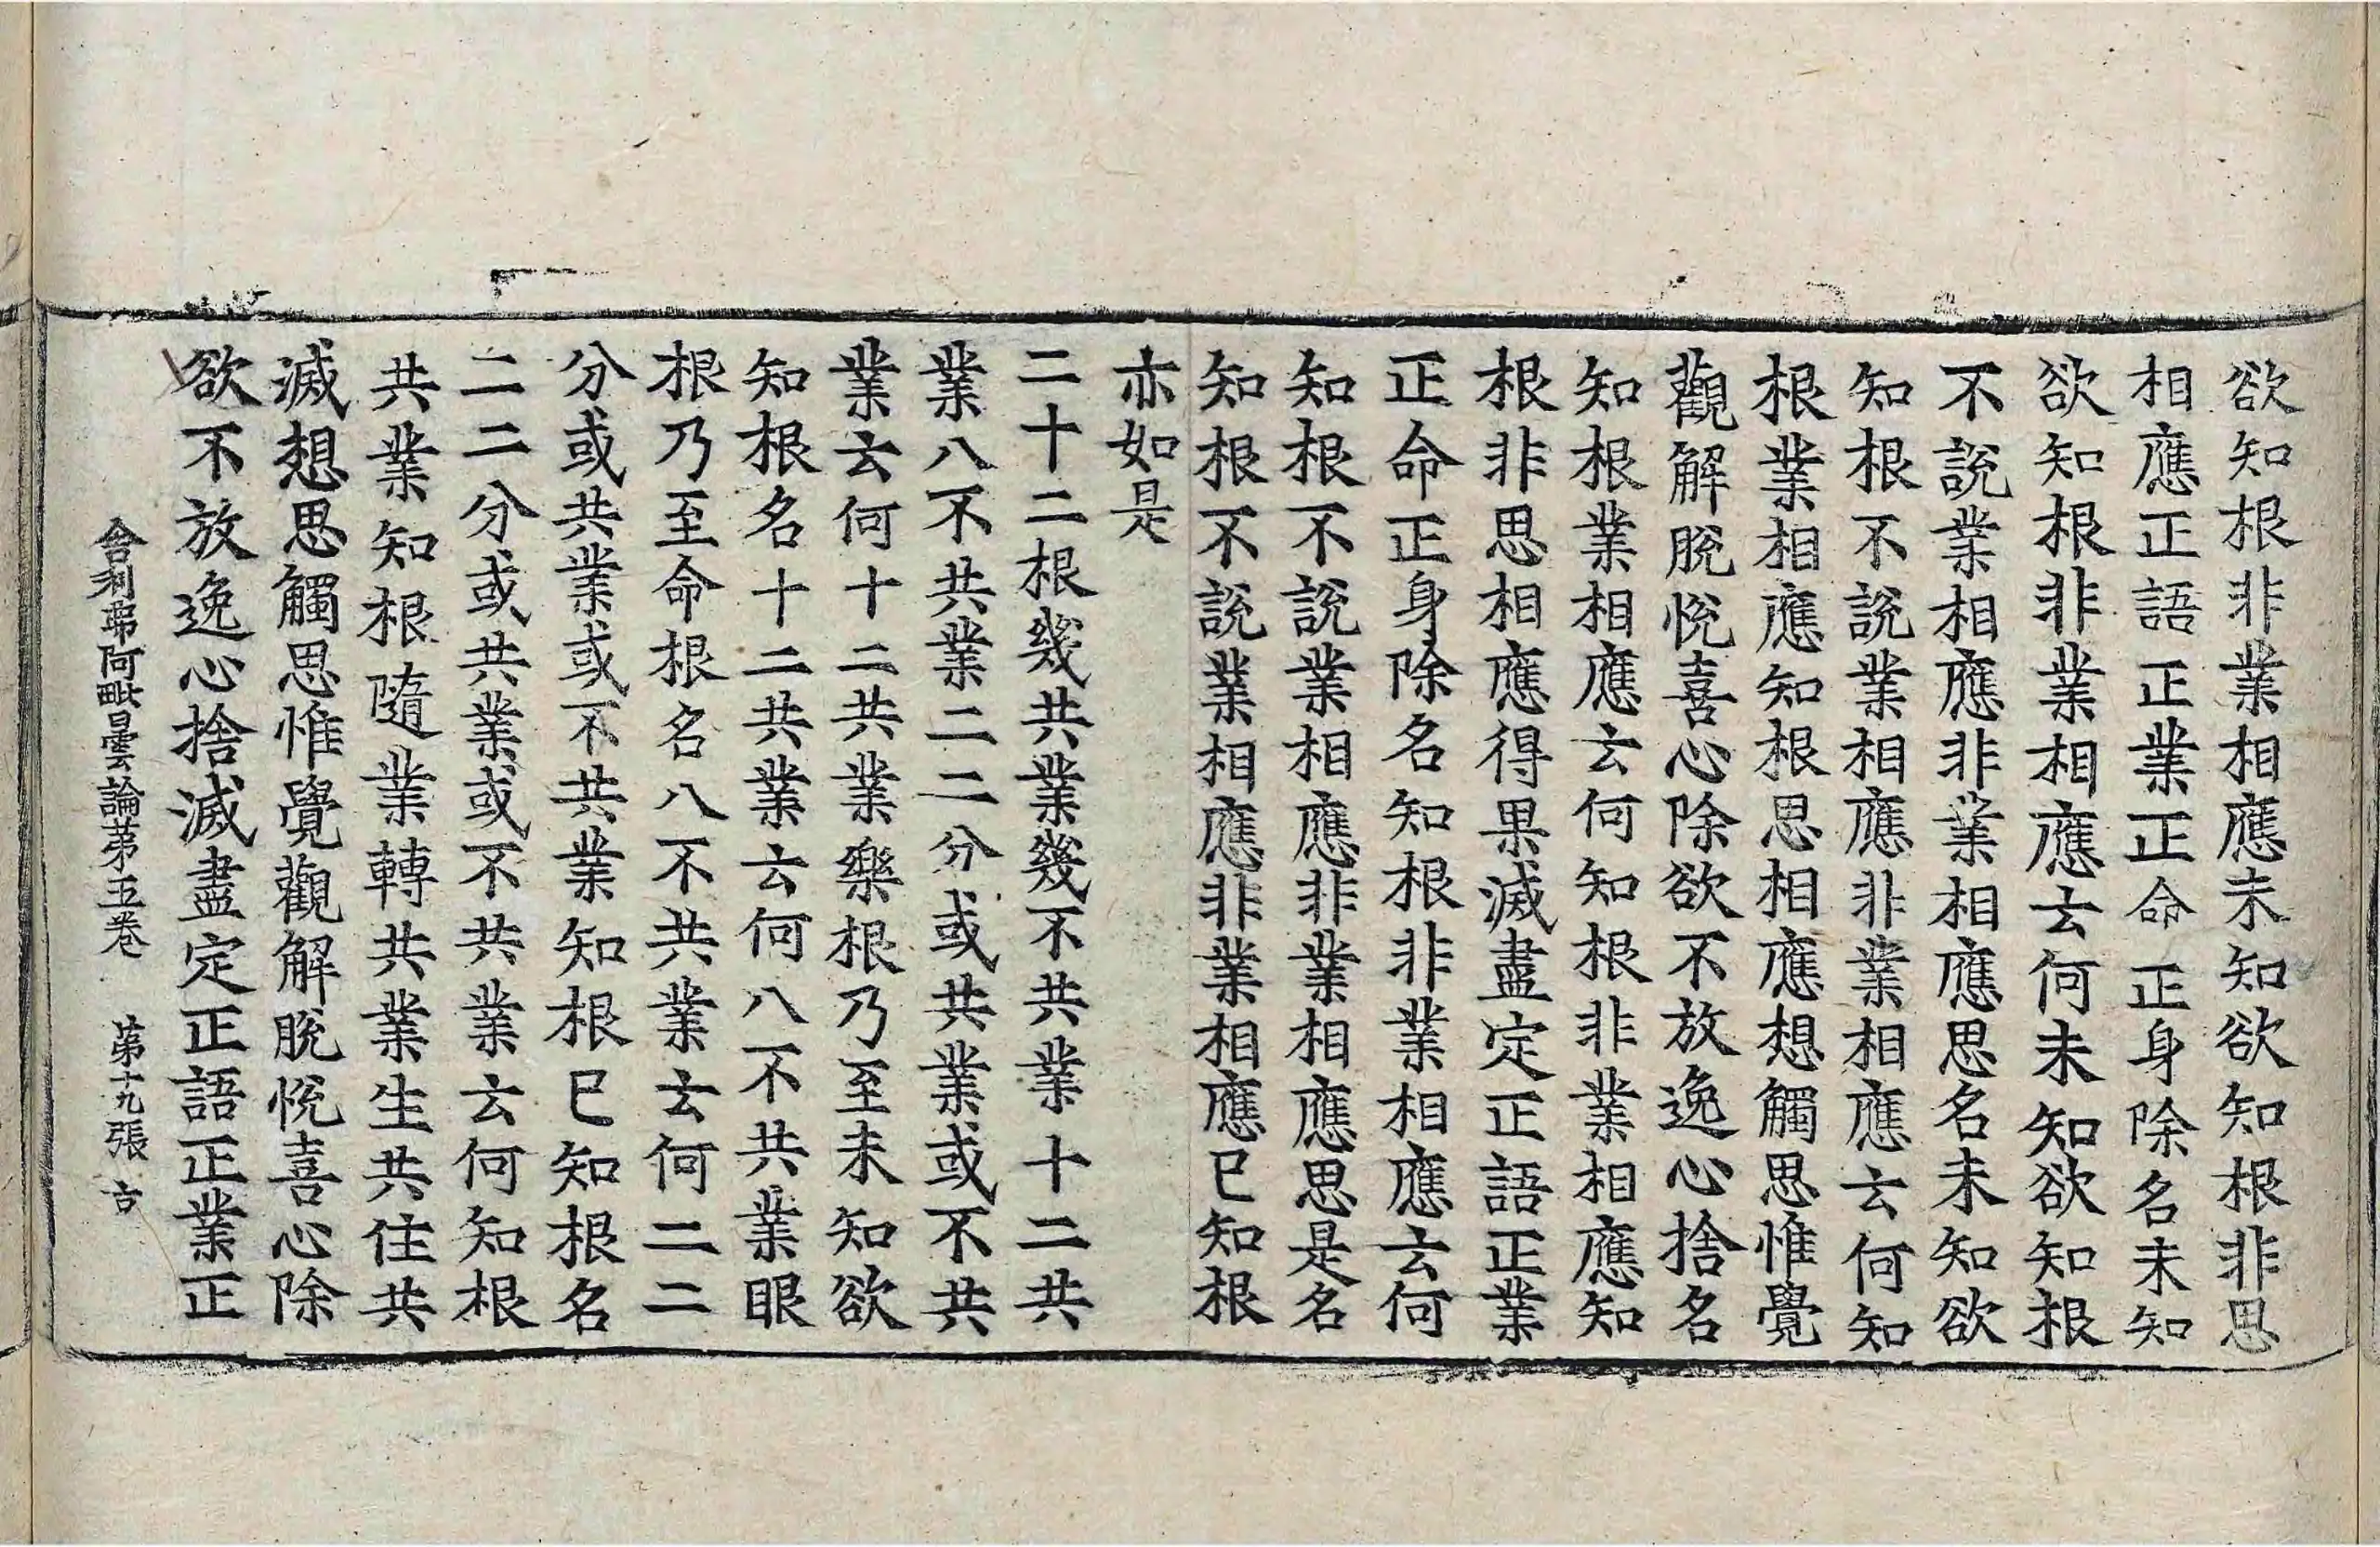 欲知根非業相應未知欲知根非思
相應正語正業正命正身除名未知
欲知根非業相應云何未知欲知根
不說業相應非業相應思名未知欲
知根不說業相應非業相應云何知
根業相應知根思相應想觸思惟覺
觀解脫悅喜心除欲不放逸心捨名
知根業相應云何知根非業相應知
根非思相應得果滅盡定正語正業
正命正身除名知根非業相應云何
知根不說業相應非業相應思是名
知根不說業相應非業相應已知根
亦如是
二十二根幾共業幾不共業十二共
業八不共業二二分或共業或不共
業云何十二共業樂根乃至未知欲
知根名十二共業云何八不共業眼
根乃至命根名八不共業云何二二
分或共業或不共業知根已知根名
二二分或共業或不共業云何知根
共業知根隨業轉共業生共住共
滅想思觸思惟覺觀解脫悅喜心除
欲不放逸心捨滅盡定正語正業正
舍利弗阿毗曇論第五卷 第十九張 古